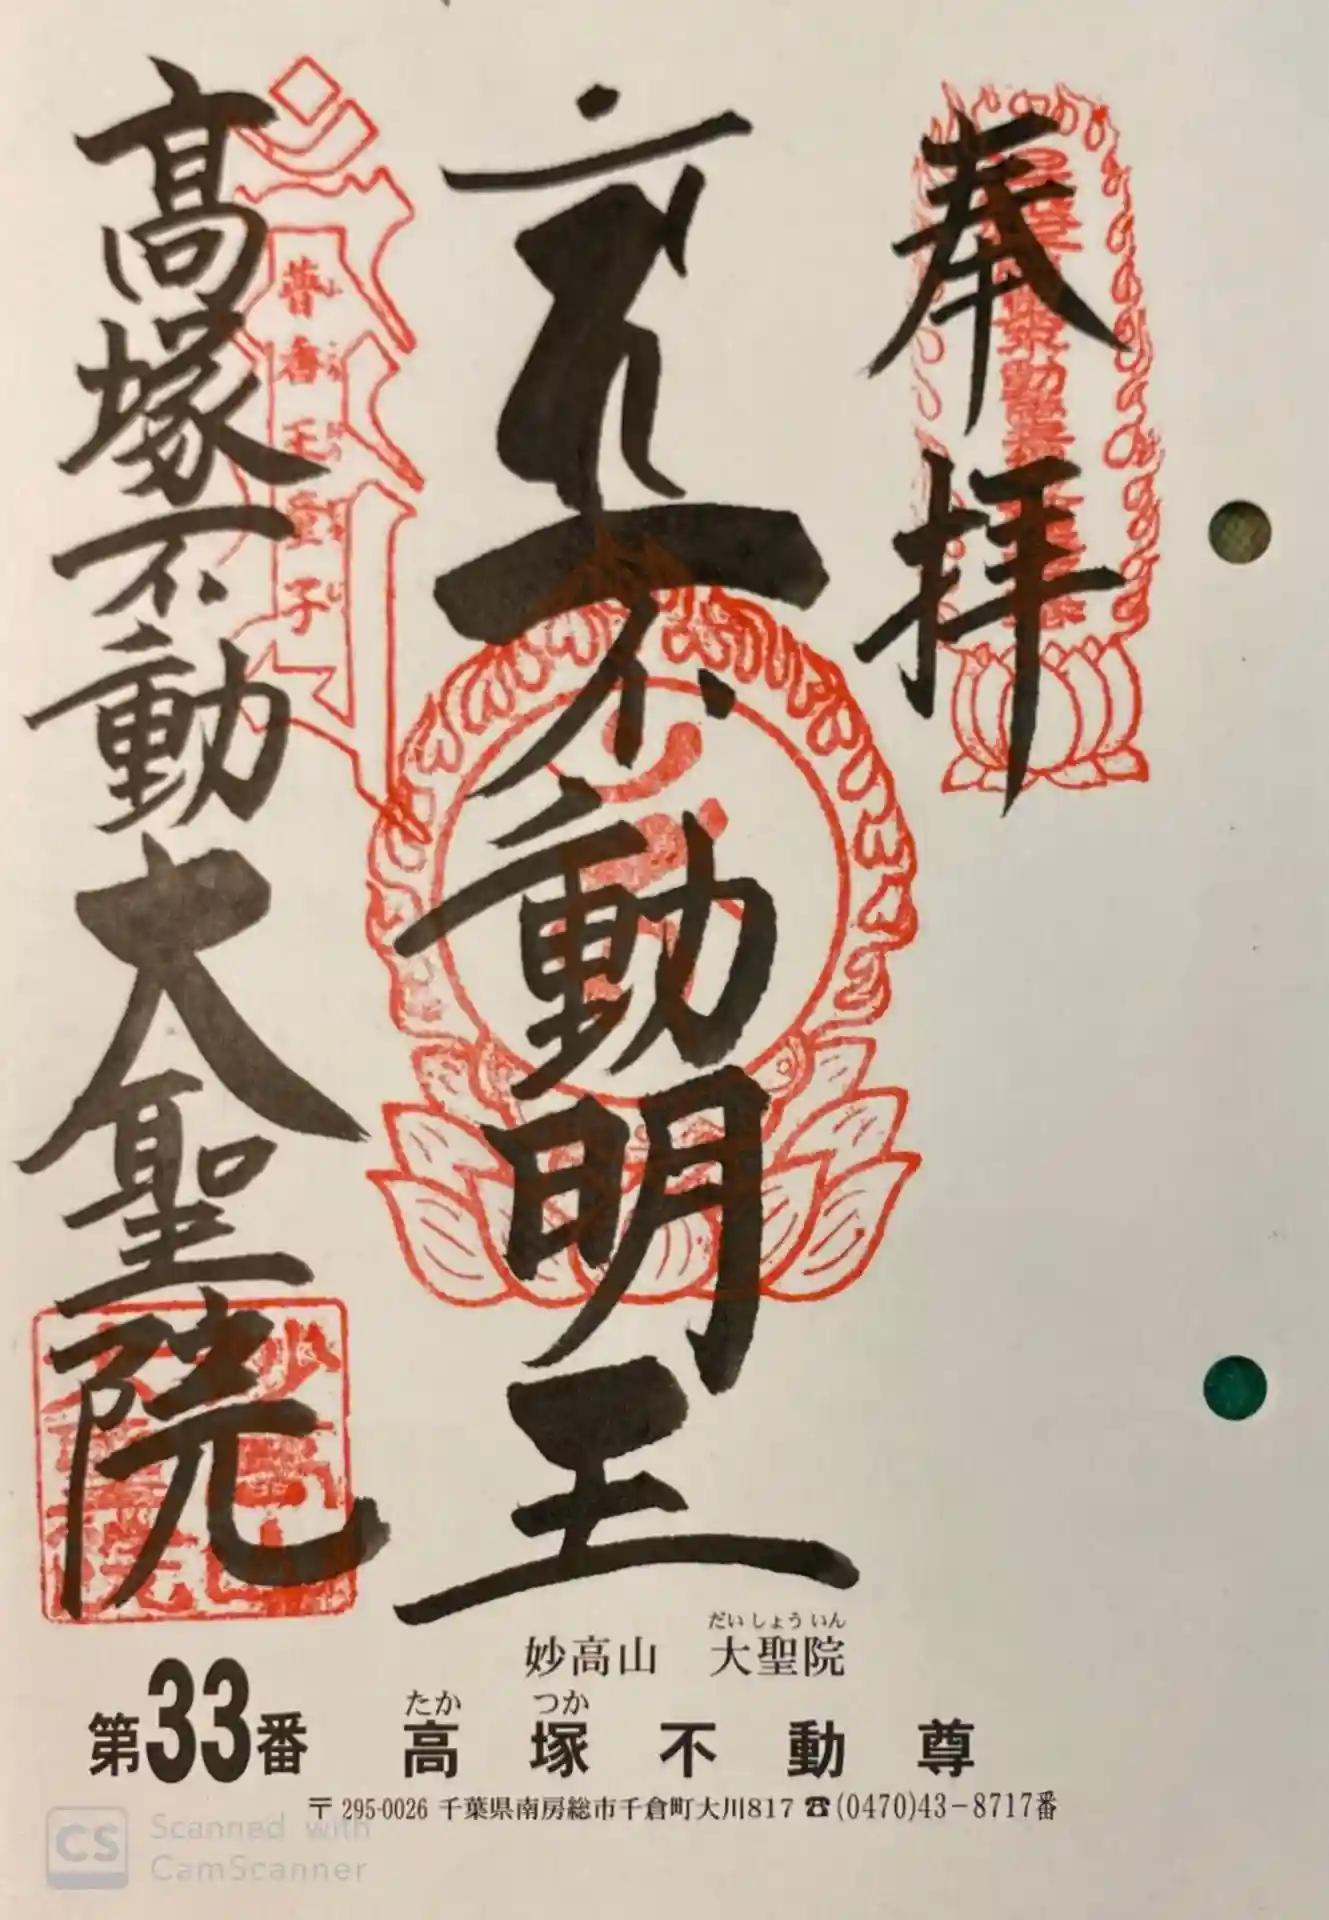 奉拝
不動明王
高塚不動大聖院
普香王童子
だいしょういん
妙高山 大聖院
たか つか
第33番 高塚不動尊
〒295-0026 千葉県南房総市千倉町大川817 ☎(0470)43-8717番
CS Scanned with
CamScanner